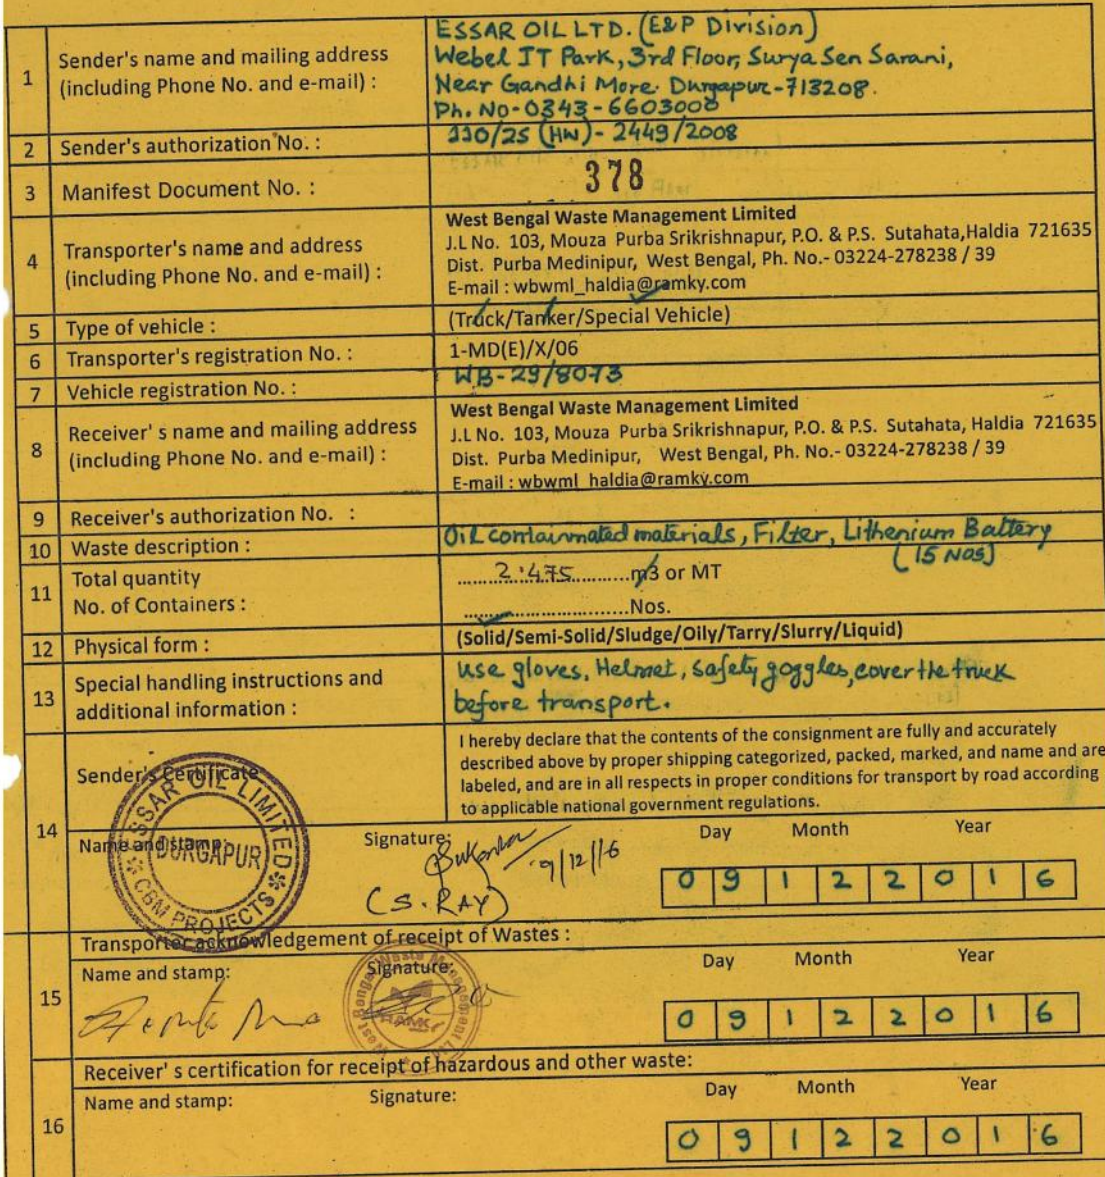 1
Sender's name and mailing address
(including Phone No. and e-mail) :
ESSAR OIL LTD. (E&P Division)
Webel IT Park, 3rd Floor, Surya Sen Sarani,
Near Gandhi More Durgapur-713208.
Ph. No-0343-6603000
2 Sender's authorization No. : 110/2S (HW) - 2449/2008
3 Manifest Document No. : 378
4
Transporter's name and address
(including Phone No. and e-mail) :
West Bengal Waste Management Limited
J.L No. 103, Mouza Purba Srikrishnapur, P.O. & P.S. Sutahata,Haldia 721635
Dist. Purba Medinipur, West Bengal, Ph. No.- 03224-278238 / 39
E-mail : wbwml_haldia@ramky.com
5 Type of vehicle : (Truck/Tanker/Special Vehicle)
6 Transporter's registration No. : 1-MD(E)/X/06
7 Vehicle registration No. : WB-29/8073
8
Receiver' s name and mailing address
(including Phone No. and e-mail) :
West Bengal Waste Management Limited
J.L No. 103, Mouza Purba Srikrishnapur, P.O. & P.S. Sutahata, Haldia 721635
Dist. Purba Medinipur, West Bengal, Ph. No.- 03224-278238 / 39
E-mail : wbwml_haldia@ramky.com
9 Receiver's authorization No. :
10 Waste description : Oil contaimnated materials, Filter, Lithenium Battery
(15 Nos)
11
Total quantity
2.475 m3 or MT
No. of Containers :
Nos.
12 Physical form : (Solid/Semi-Solid/Sludge/Oily/Tarry/Slurry/Liquid)
13
Special handling instructions and
additional information :
use gloves, Helmet, safety goggles, cover the truck
before transport.
14
Sender's Certificate
I hereby declare that the contents of the consignment are fully and accurately
described above by proper shipping categorized, packed, marked, and name and are
labeled, and are in all respects in proper conditions for transport by road according
to applicable national government regulations.
Name and stamp:
ESSAR OIL LIMITED
DURGAPUR
CBM PROJECTS
Signature:
9/12/16
(S. RAY)
Day Month Year
0 9 1 2 2 0 1 6
15
Transporter acknowledgement of receipt of Wastes :
Name and stamp: Signature: Day Month Year
West Bengal Waste Management Ltd
RAMKY
0 9 1 2 2 0 1 6
16
Receiver' s certification for receipt of hazardous and other waste:
Name and stamp: Signature: Day Month Year
0 9 1 2 2 0 1 6